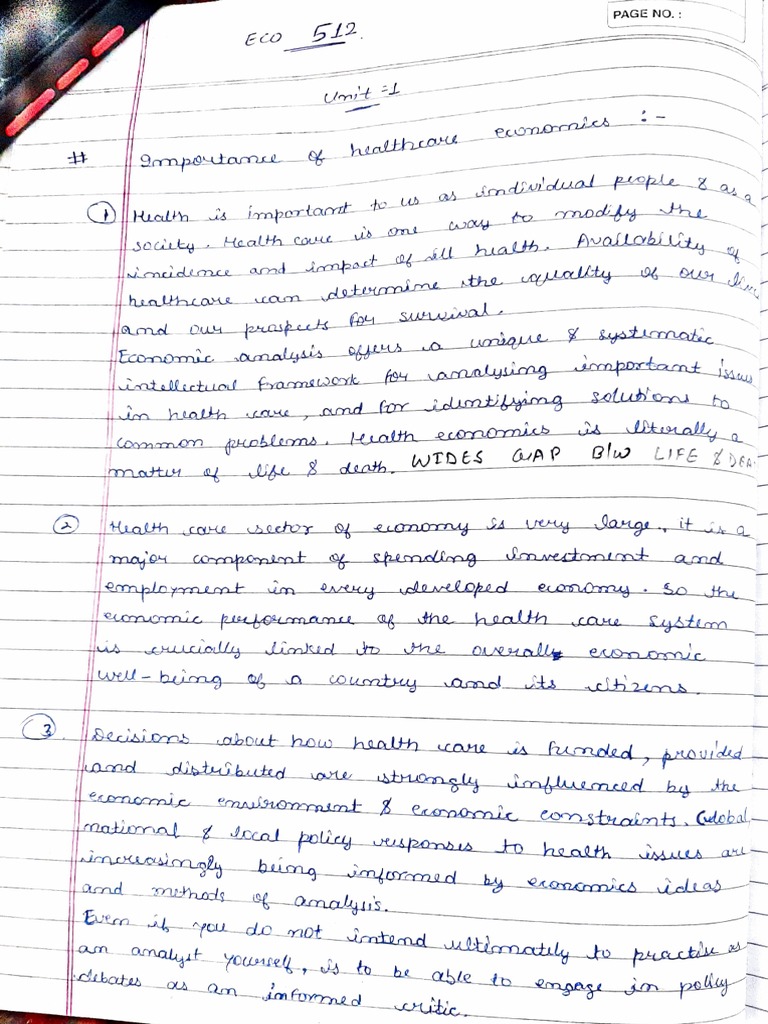 PAGE NO. :
ECO 512.
Unit =1
# Importance of healthcare economics :-
① Health is important to us as individual people & as a
society. Health care is one way to modify the
incidence and impact of ill health. Availability of
healthcare can determine the quality of our lives
and our prospects for survival.
Economic analysis offers a unique & systematic
intellectual framework for analysing important issues
in health care, and for identifying solutions to
common problems. Health economics is literally a
matter of life & death. WIDES GAP B/W LIFE & DEA
② Health care sector of economy is very large., it is a
major component of spending investment and
employment in every developed economy. So the
economic performance of the health care system
is crucially linked to the overall economic
well-being of a country and its citizens.
③. Decisions about how health care is funded, provided
and distributed are strongly influenced by the
economic environment & economic constraints. Global,
national & local policy responses to health issues are
increasingly being informed by economics ideas
and methods of analysis.
Even if you do not intend ultimately to practise as
an analyst yourself, is to be able to engage in policy
debates as an informed critic.